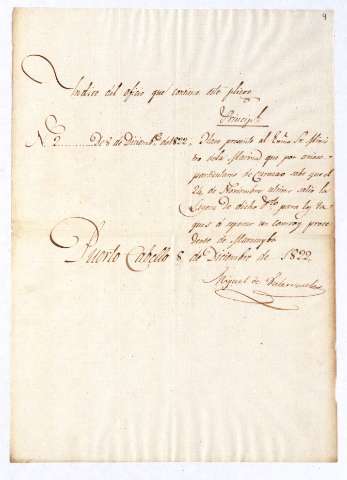 9
Yndice del oficio que contiene este pliego
Principl
N.º 2 ...... De 8 de Diciembre de 1822. Dixe presente al Exmo Sr. Minis
tro de la Marina que por avisos
particulares de Curacao sabe que el
24 de Noviembre ultimo salio la
de dicho Pto para los Ca
yos à esperar un comboy proce
dente de Maracaybo
Puerto Cabello 8 de Diciembre de 1822.
Miguel de